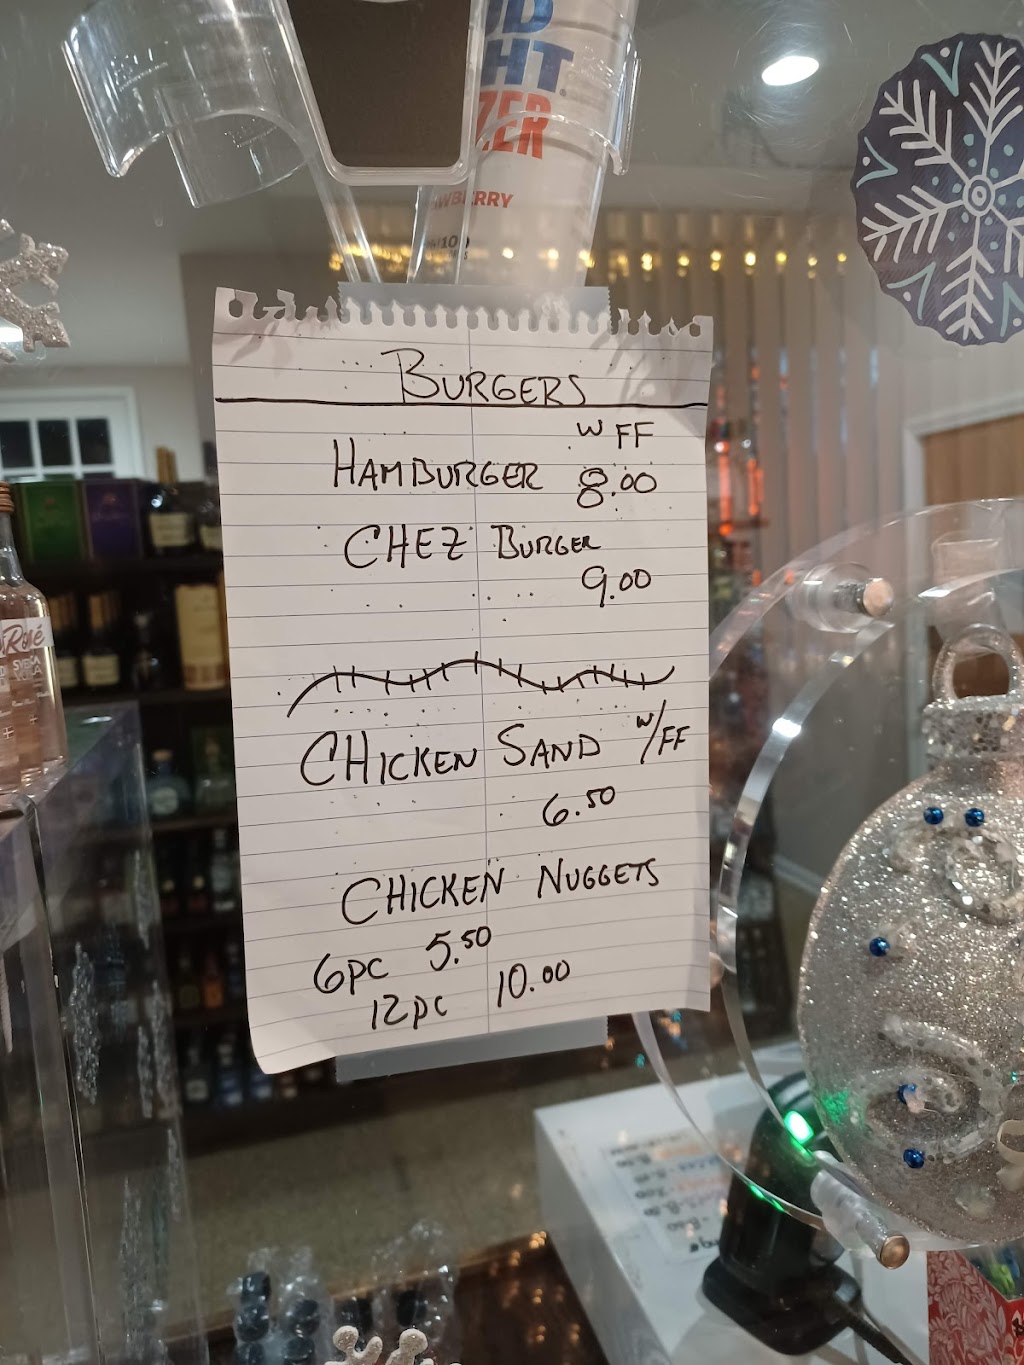 HT
ZER
BURGERS
W FF
HAMBURGER 8.00
CHEZ BURGER
9.00
CHICKEN SAND W/FF
6.50
CHICKEN NUGGETS
6PC 5.50
12PC 10.00
Rosé